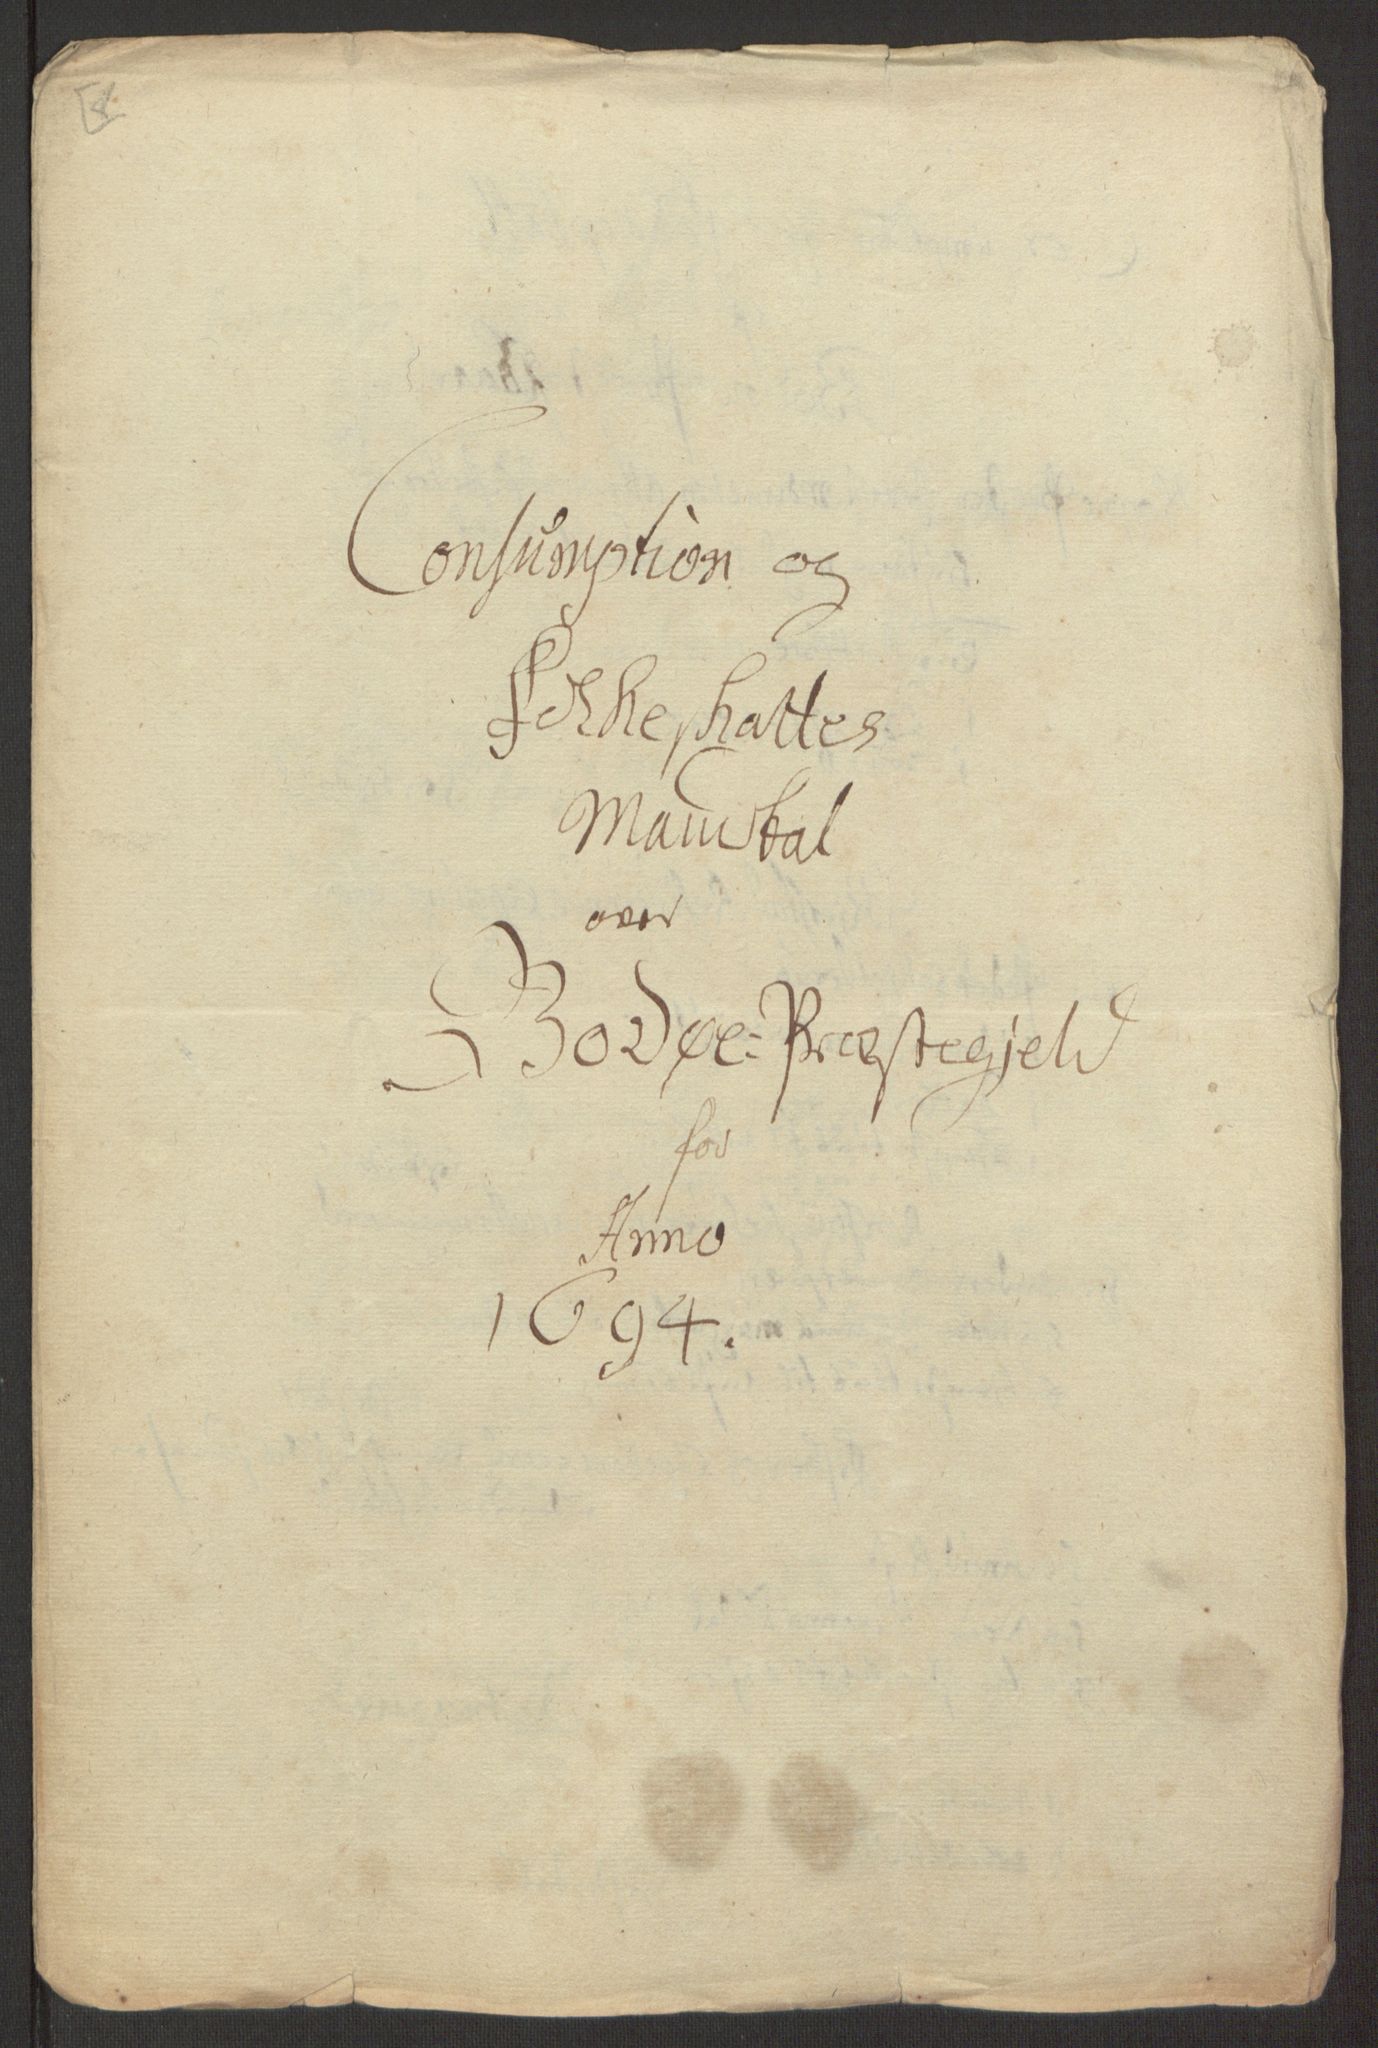 Consumption og
Folkeskattes
Mandtal
over
Bodøe: Præstegjeld
for
Anno
1694.